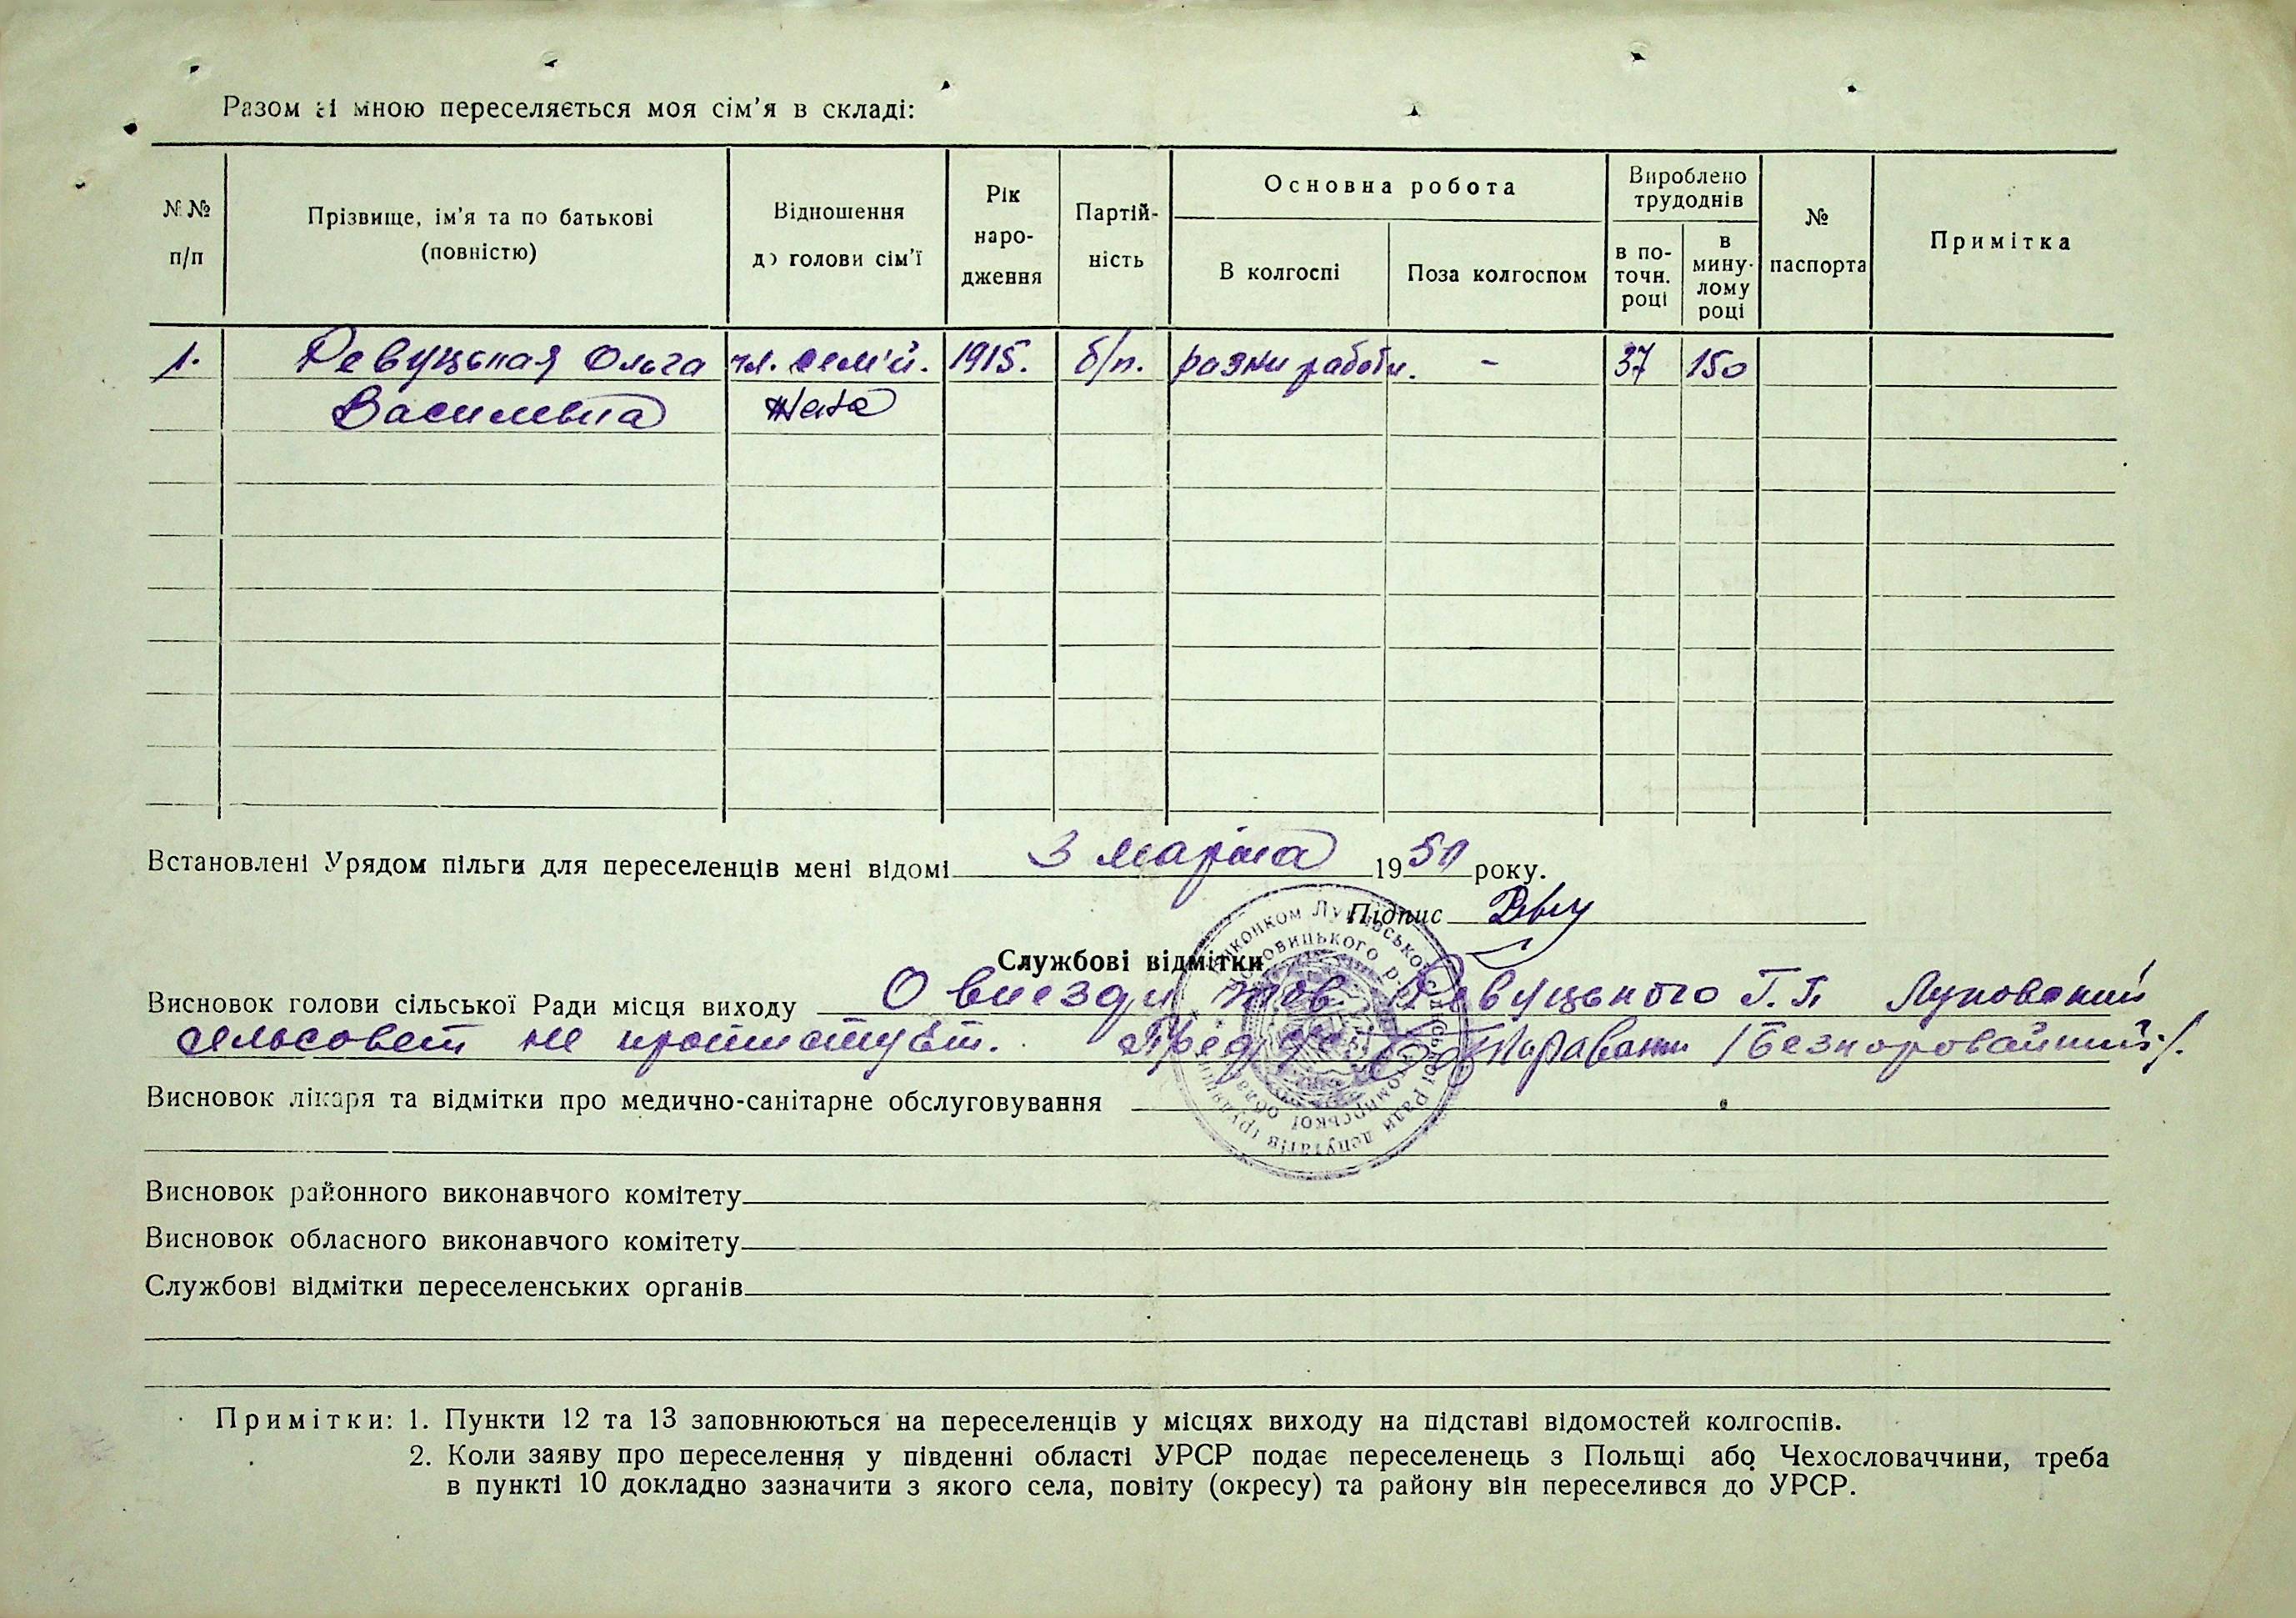 Разом зі мною переселяється моя сім'я в складі:
№№ п/п
Прізвище, ім'я та по батькові (повністю)
Відношення до голови сім'ї
Рік народження
Партійність
Основна робота
В колгоспі
Поза колгоспом
Вироблено трудоднів
в поточн. році
в минулому році
№ паспорта
Примітка
1. Ревуцькая Ольга чл. семй. 1915. б/п. разни работи. - 37 150
Василевна жена
Встановлені Урядом пільги для переселенців мені відомі 3 марта 1950 року.
Підпис
Службові відмітки
Висновок голови сільської Ради місця виходу О виезди тов. Ревуцького Г. Луковский
сельсовет не протистуёт. Пред. /Безкоровайний/.
Висновок лікаря та відмітки про медично-санітарне обслуговування
Висновок районного виконавчого комітету
Висновок обласного виконавчого комітету
Службові відмітки переселенських органів
Примітки: 1. Пункти 12 та 13 заповнюються на переселенців у місцях виходу на підставі відомостей колгоспів.
2. Коли заяву про переселення у південні області УРСР подає переселенець з Польщі або Чехословаччини, треба
в пункті 10 докладно зазначити з якого села, повіту (окресу) та району він переселився до УРСР.